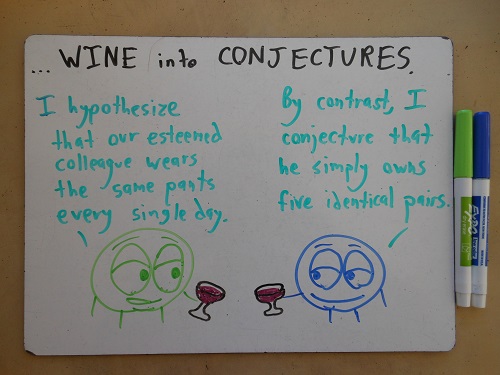 ... WINE into CONJECTURES.
I hypothesize
that our esteemed
colleague wears
the same pants
every single day.
By contrast, I
conjecture that
he simply owns
five identical pairs.
EXPO